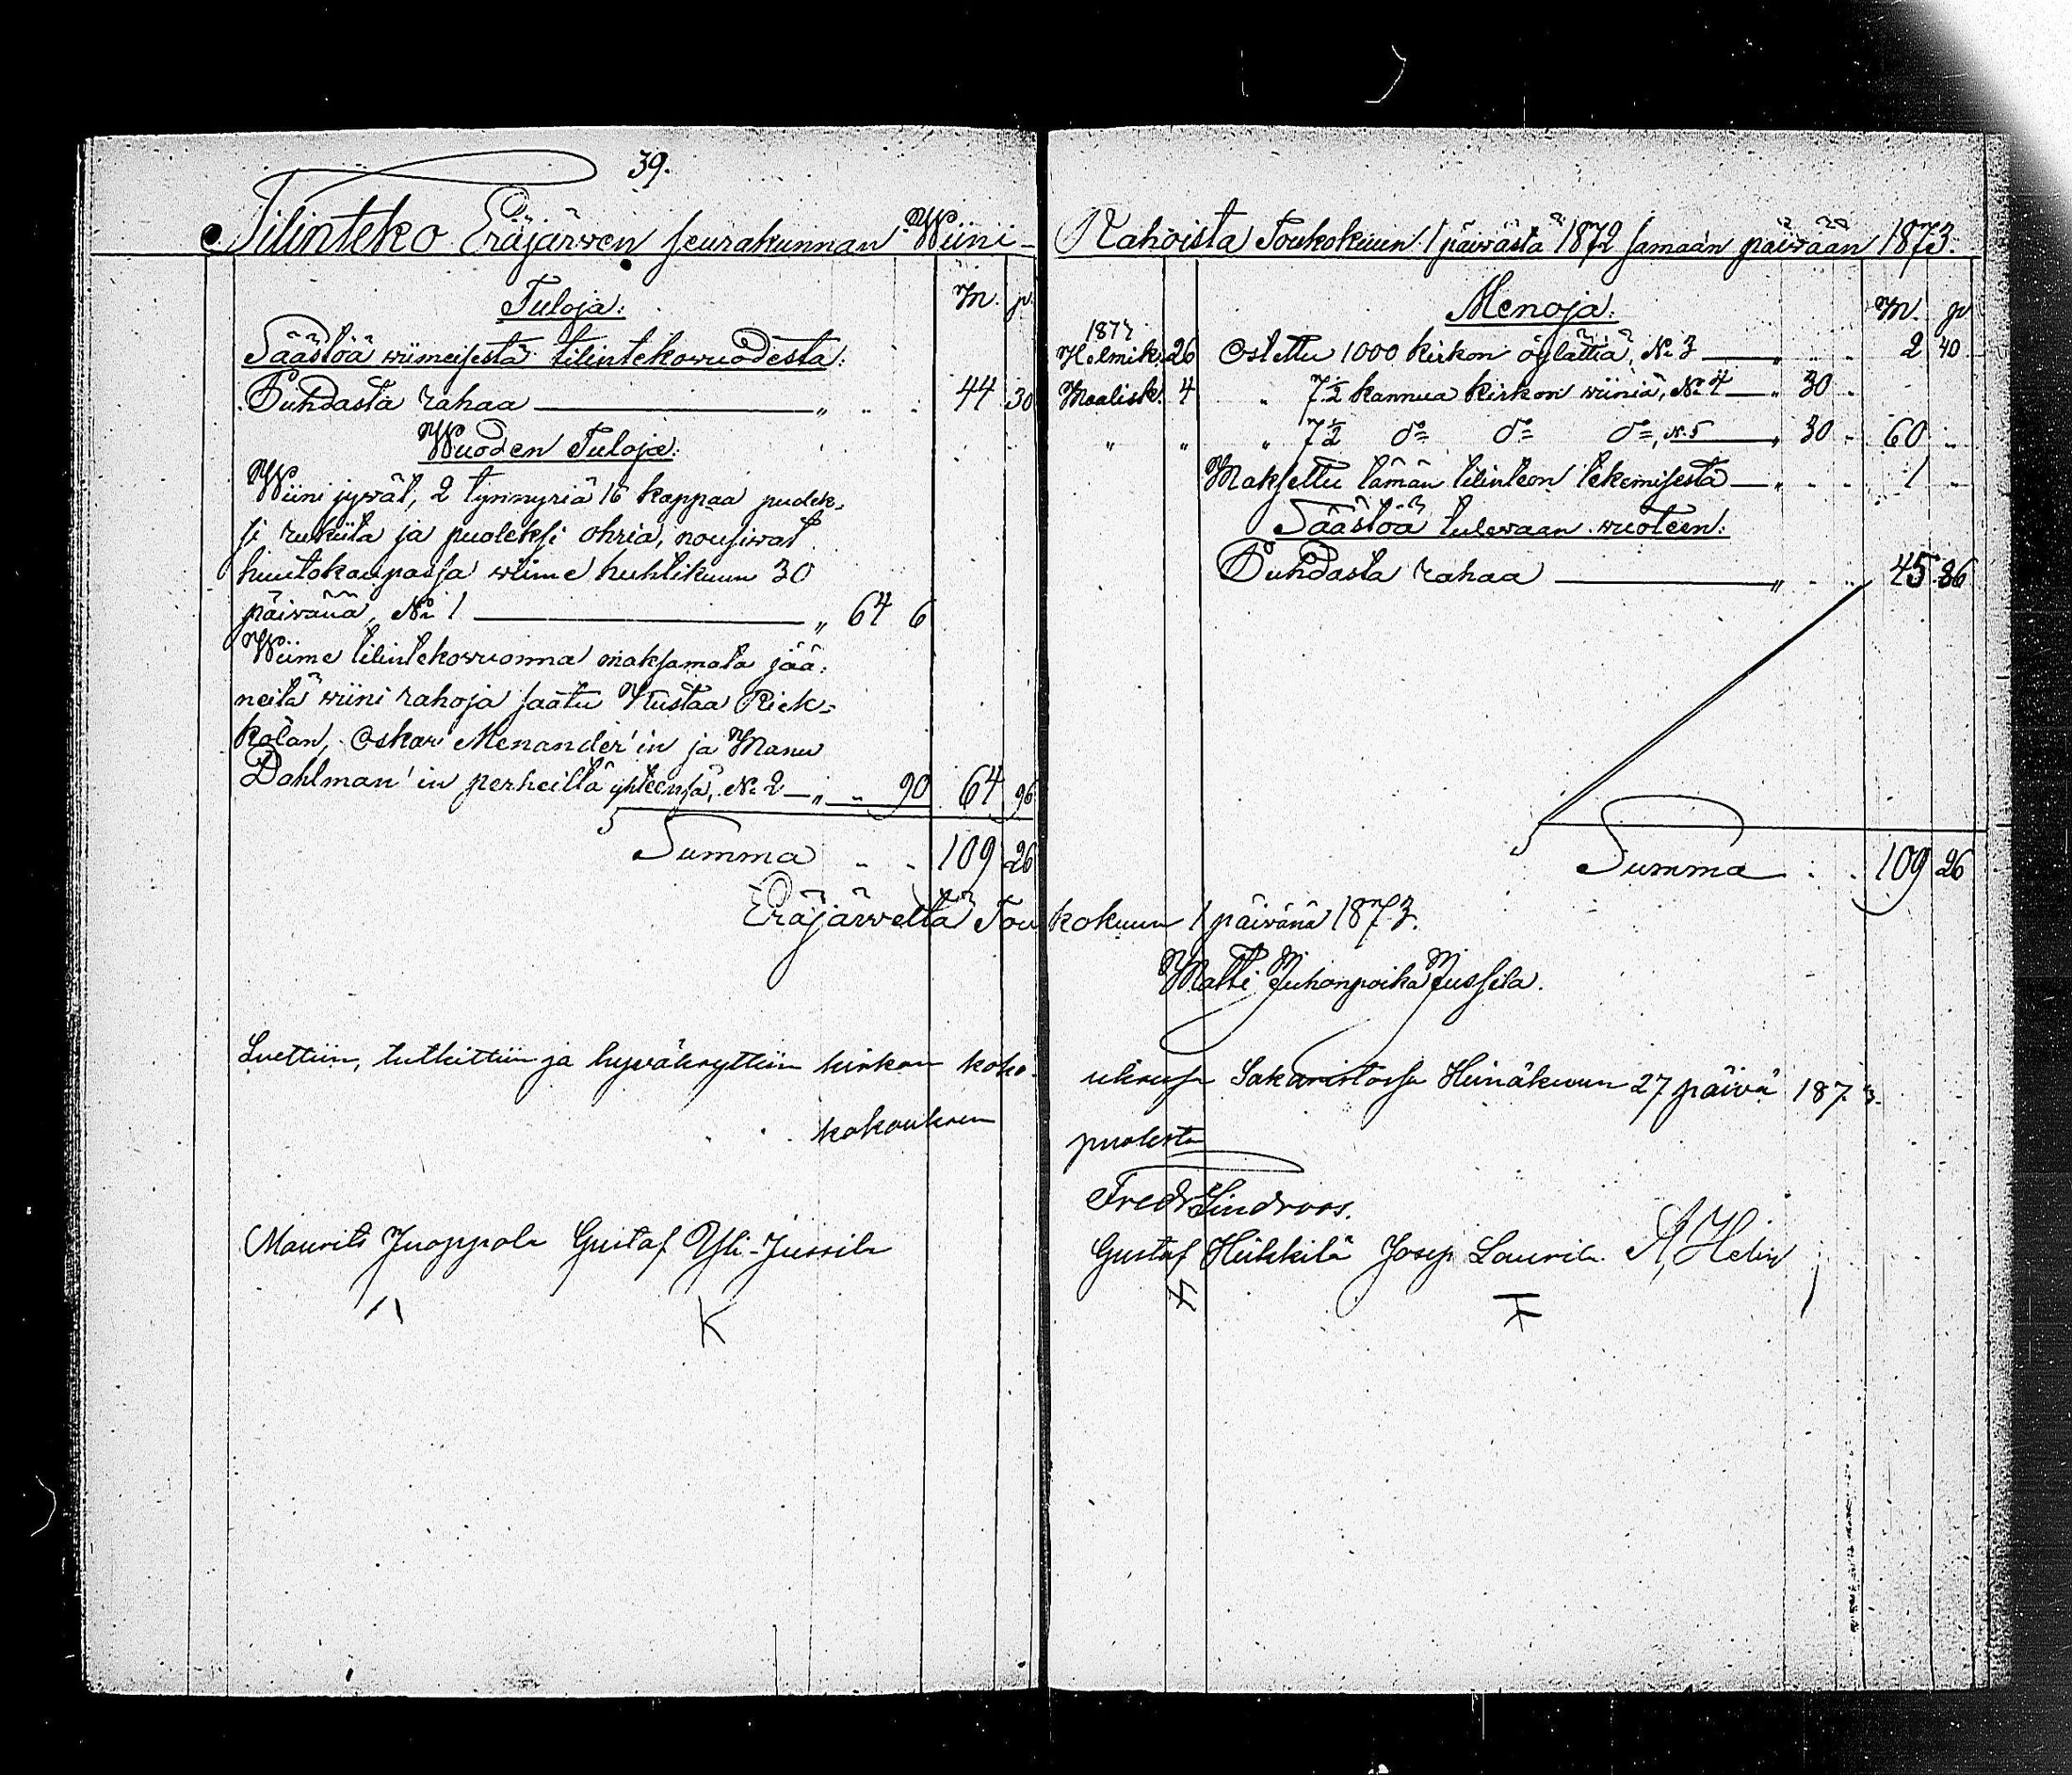 39.
Tilinteko Eräjärwen seurakunnan Wiini-
Tuloja:
M. p.
Säästöä wiimeisestä tilintekowuodesta:
Puhdasta rahaa — „ 44 30
Wuoden Tuloja:
Wiini jywät, 2 tynnyriä 16 kappaa puolek-
si rukiita ja puoleksi ohria, nousiwat
huutokaupassa wiime huhtikuun 30
päiwänä, No 1 — „ 64 6
Wiime tilintekowuonna maksamata jää-
neitä wiini rahoja saatu Kustaa Riek-
kolan, Oskar Menander'in ja Manu
Dahlman'in perheiltä yhteensä, No 2 — „ „ 90 64 96
Summa „ „ 109 26
Rahoista Toukokuun 1 päiwästä 1872 samaan päiwään 1873.
Menoja:
M. p
1873
Helmik. 26 Ostettu 1000 kirkon öylättiä, No 3 — „ „ „ 2 40
Maalisk. 4 „ 7½ kannua kirkon wiiniä, No 4 — „ 30 „
„ „ „ 7½ do do do, N. 5 — „ 30 „ 60 „
Maksettu tämän tilinteon tekemisestä — „ „ „ 1 „
Säästöä tulewaan wuoteen:
Puhdasta rahaa — „ „ „ 45 86
Summa „ „ 109 26
Eräjärweltä Toukokuun 1 päiwänä 1873.
Matti Juhanpoika Jussila.
Luettiin, tutkittiin ja hyväksyttiin kirkon kokouksessa Sakaristossa Heinäkuun 27 päivä 1873.
kokouksen puolesta
Fredr Lindroos.
Maurits Juoppola Gustaf Yli-Jussila Gustaf Heikkilä Josep Laurila A, Helin
K